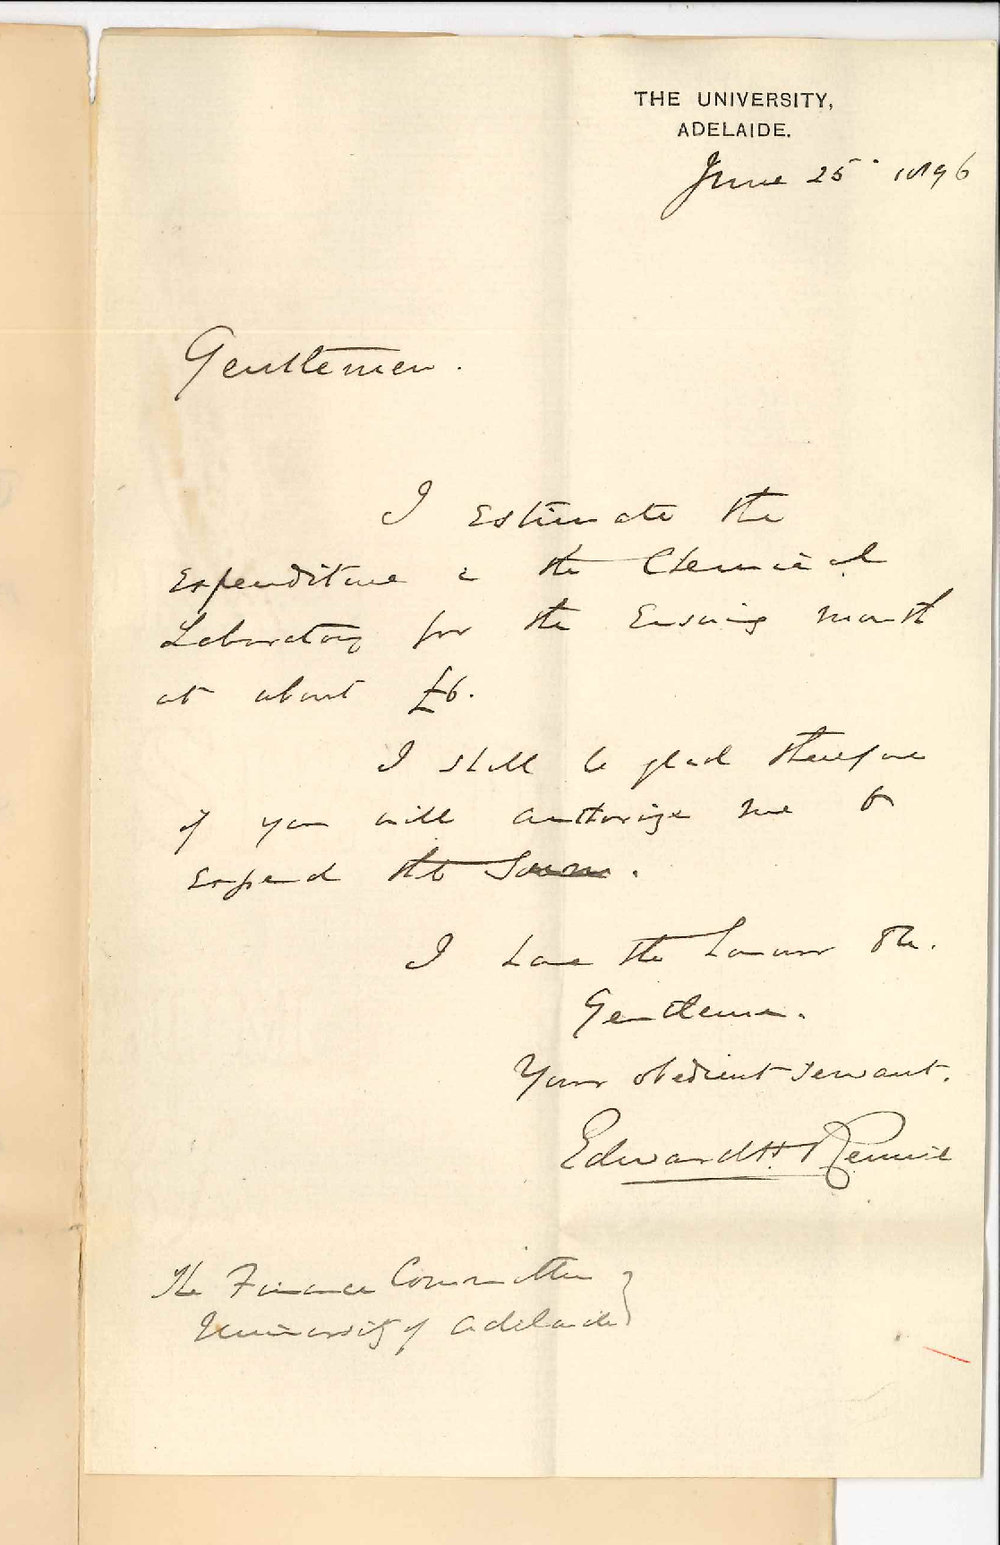 THE UNIVERSITY,
ADELAIDE.
June 25 1896
Gentlemen.
I Estimate the
Expenditure in the Chemical
Laboratory for the Ensuing month
at about £6.
I shall be glad therefore
if you will authorize me to
Expend this Sum.
I have the honour to be.
Gentlemen.
Your obedient servant.
Edward H. Rennie
The Finance Committee
University of Adelaide